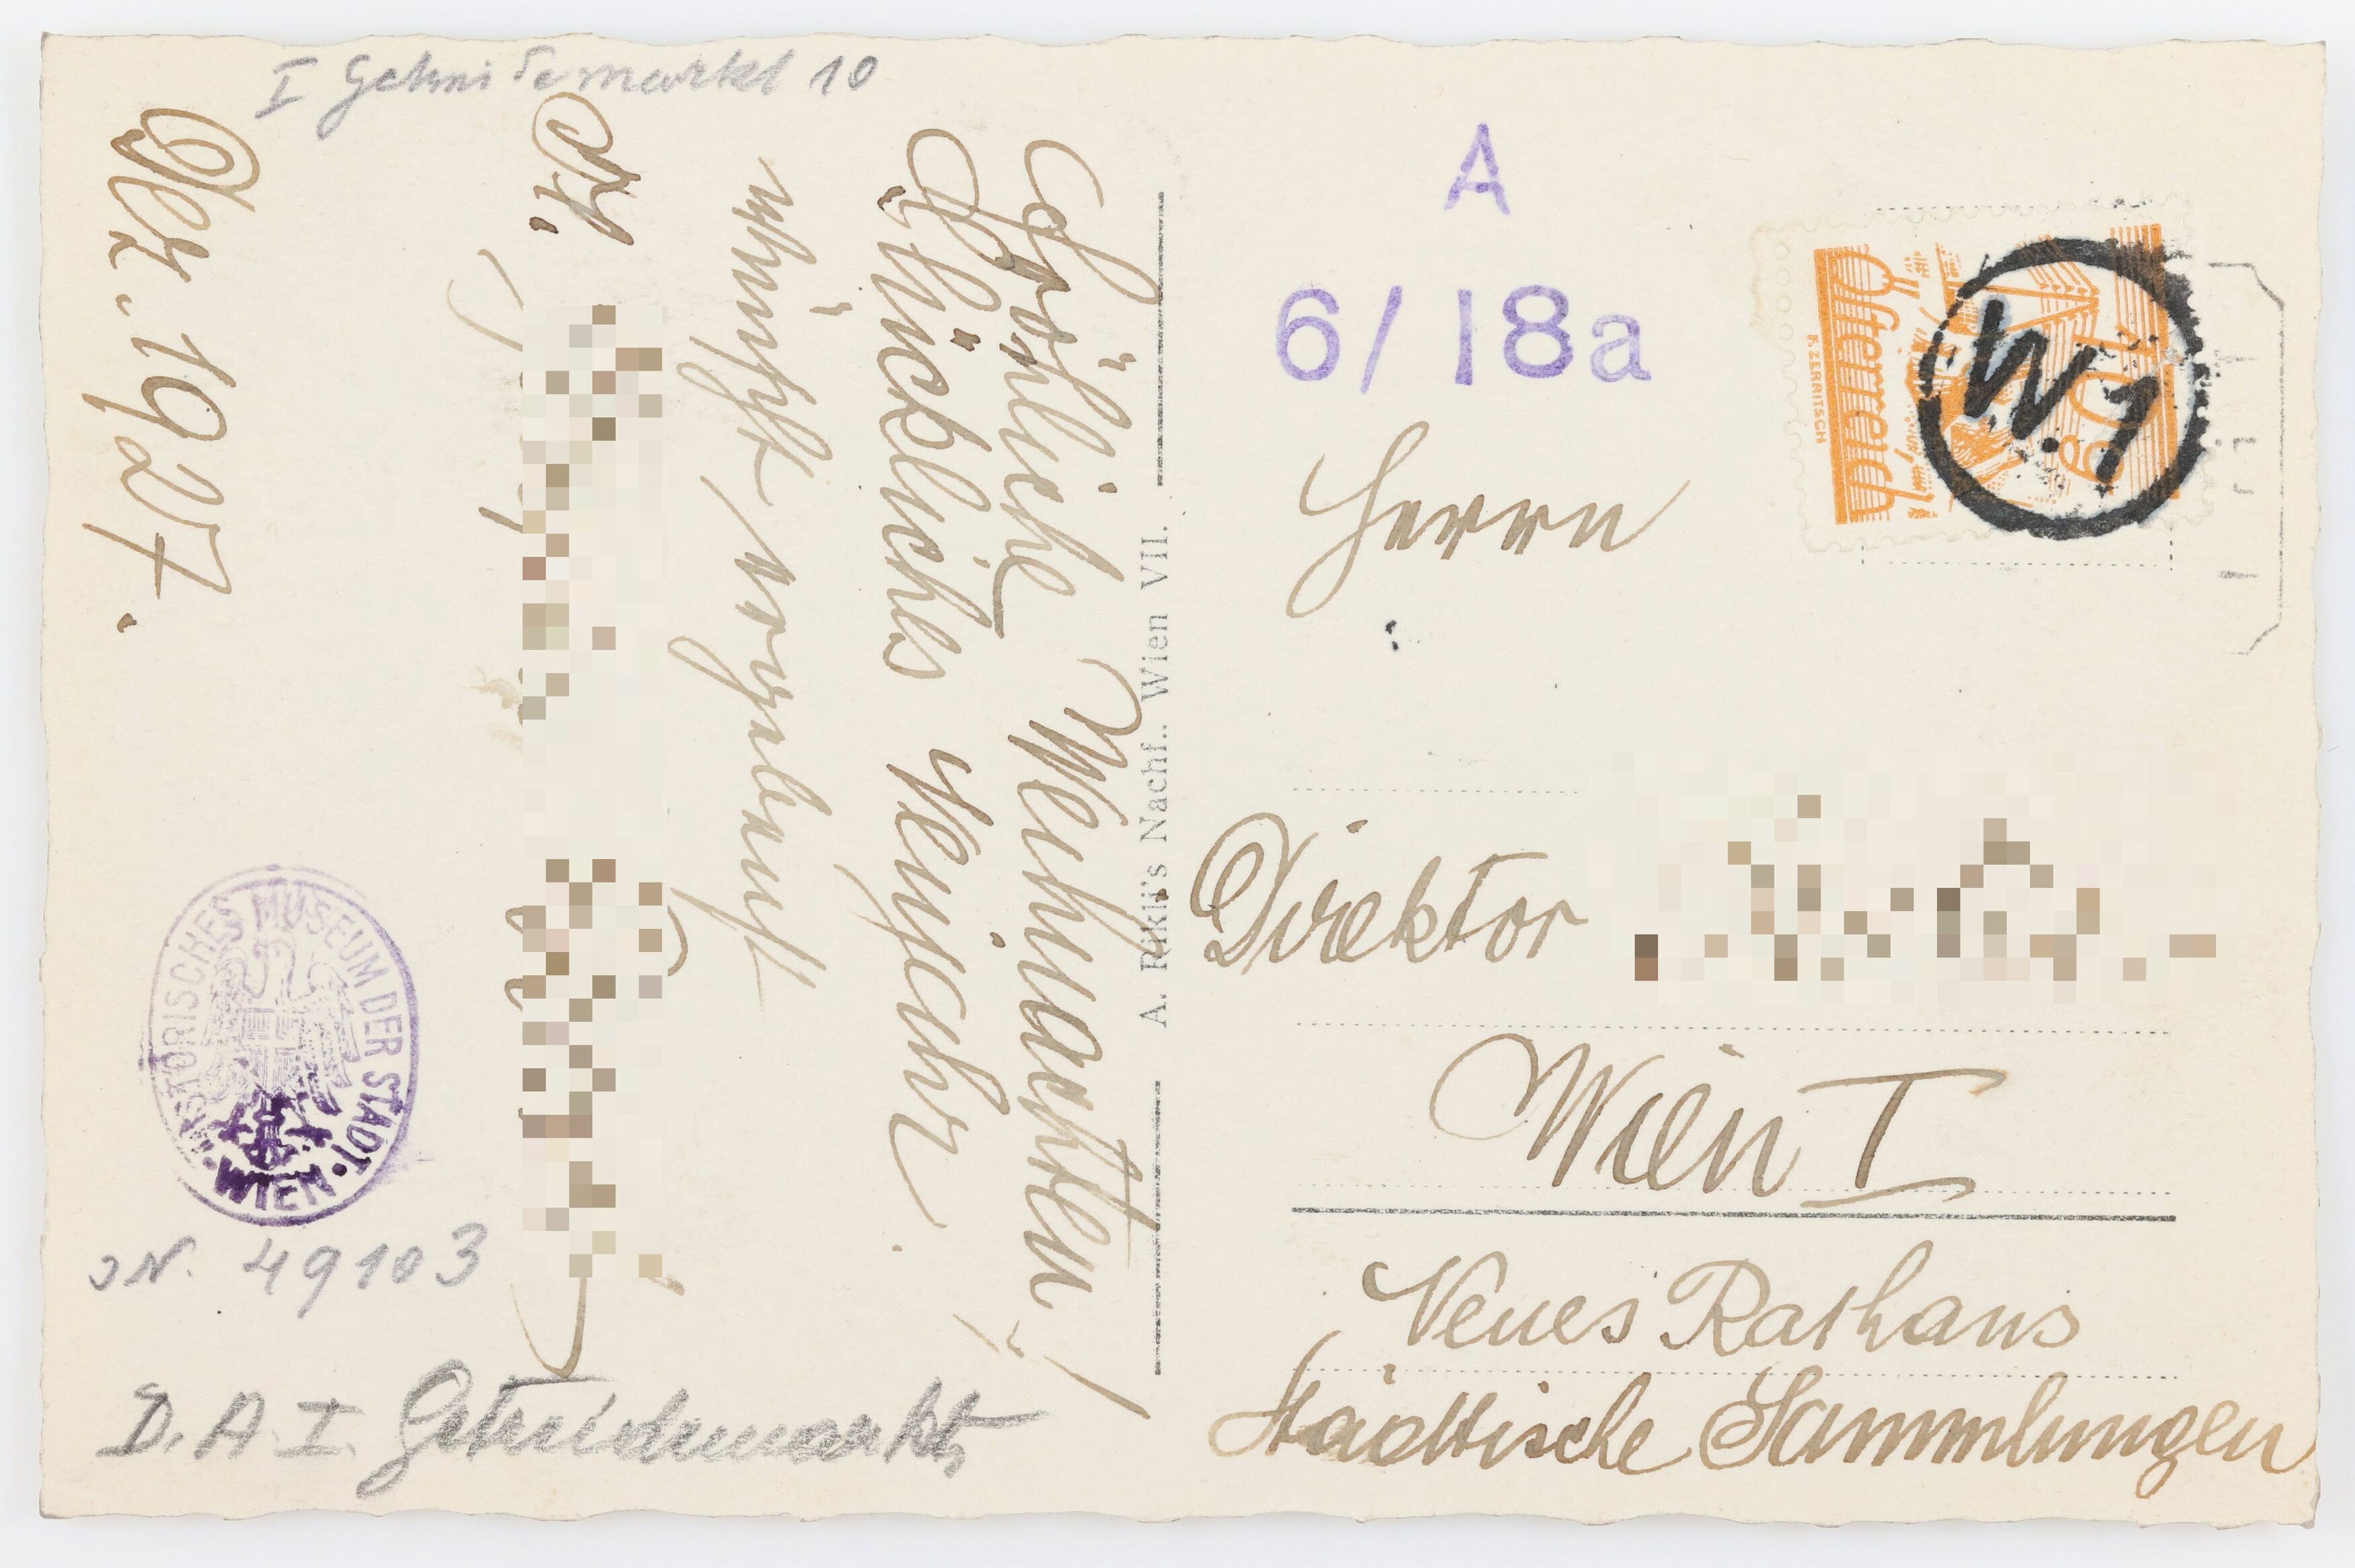 I Getreidemarkt 10
Fröhliche Weihnachten!
Glückliches Neujahr.
wünscht ergebenst
Dez. 1927.
HISTORISCHES MUSEUM DER STADT
WIEN
49103
D. A. I. Getreidemarkt
A. Rikli's Nachf., Wien VII.
A
6/18a
Österreich
F. ZERRITSCH
10 g
W.1
Herrn
Direktor
Wien I
Neues Rathaus
Städtische Sammlungen